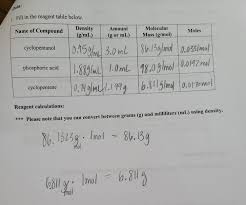 1. Fill in the reagent table below.
Name of Compound Density (g/mL) Amount (g or mL) Molecular Mass (g/mol) Moles
cyclopentanol 0.95g/mL 3.0mL 86.13g/mol
phosphoric acid 1.88g/mL 1.0mL 98.0g/mol
cyclopentene 6.811g/mol
Reagent calculations:
*** Please note that you can convert between grams (g) and milliliters (mL) using density.
1mol = 86.13g
6.811 g/mol · 1mol = 6.811g